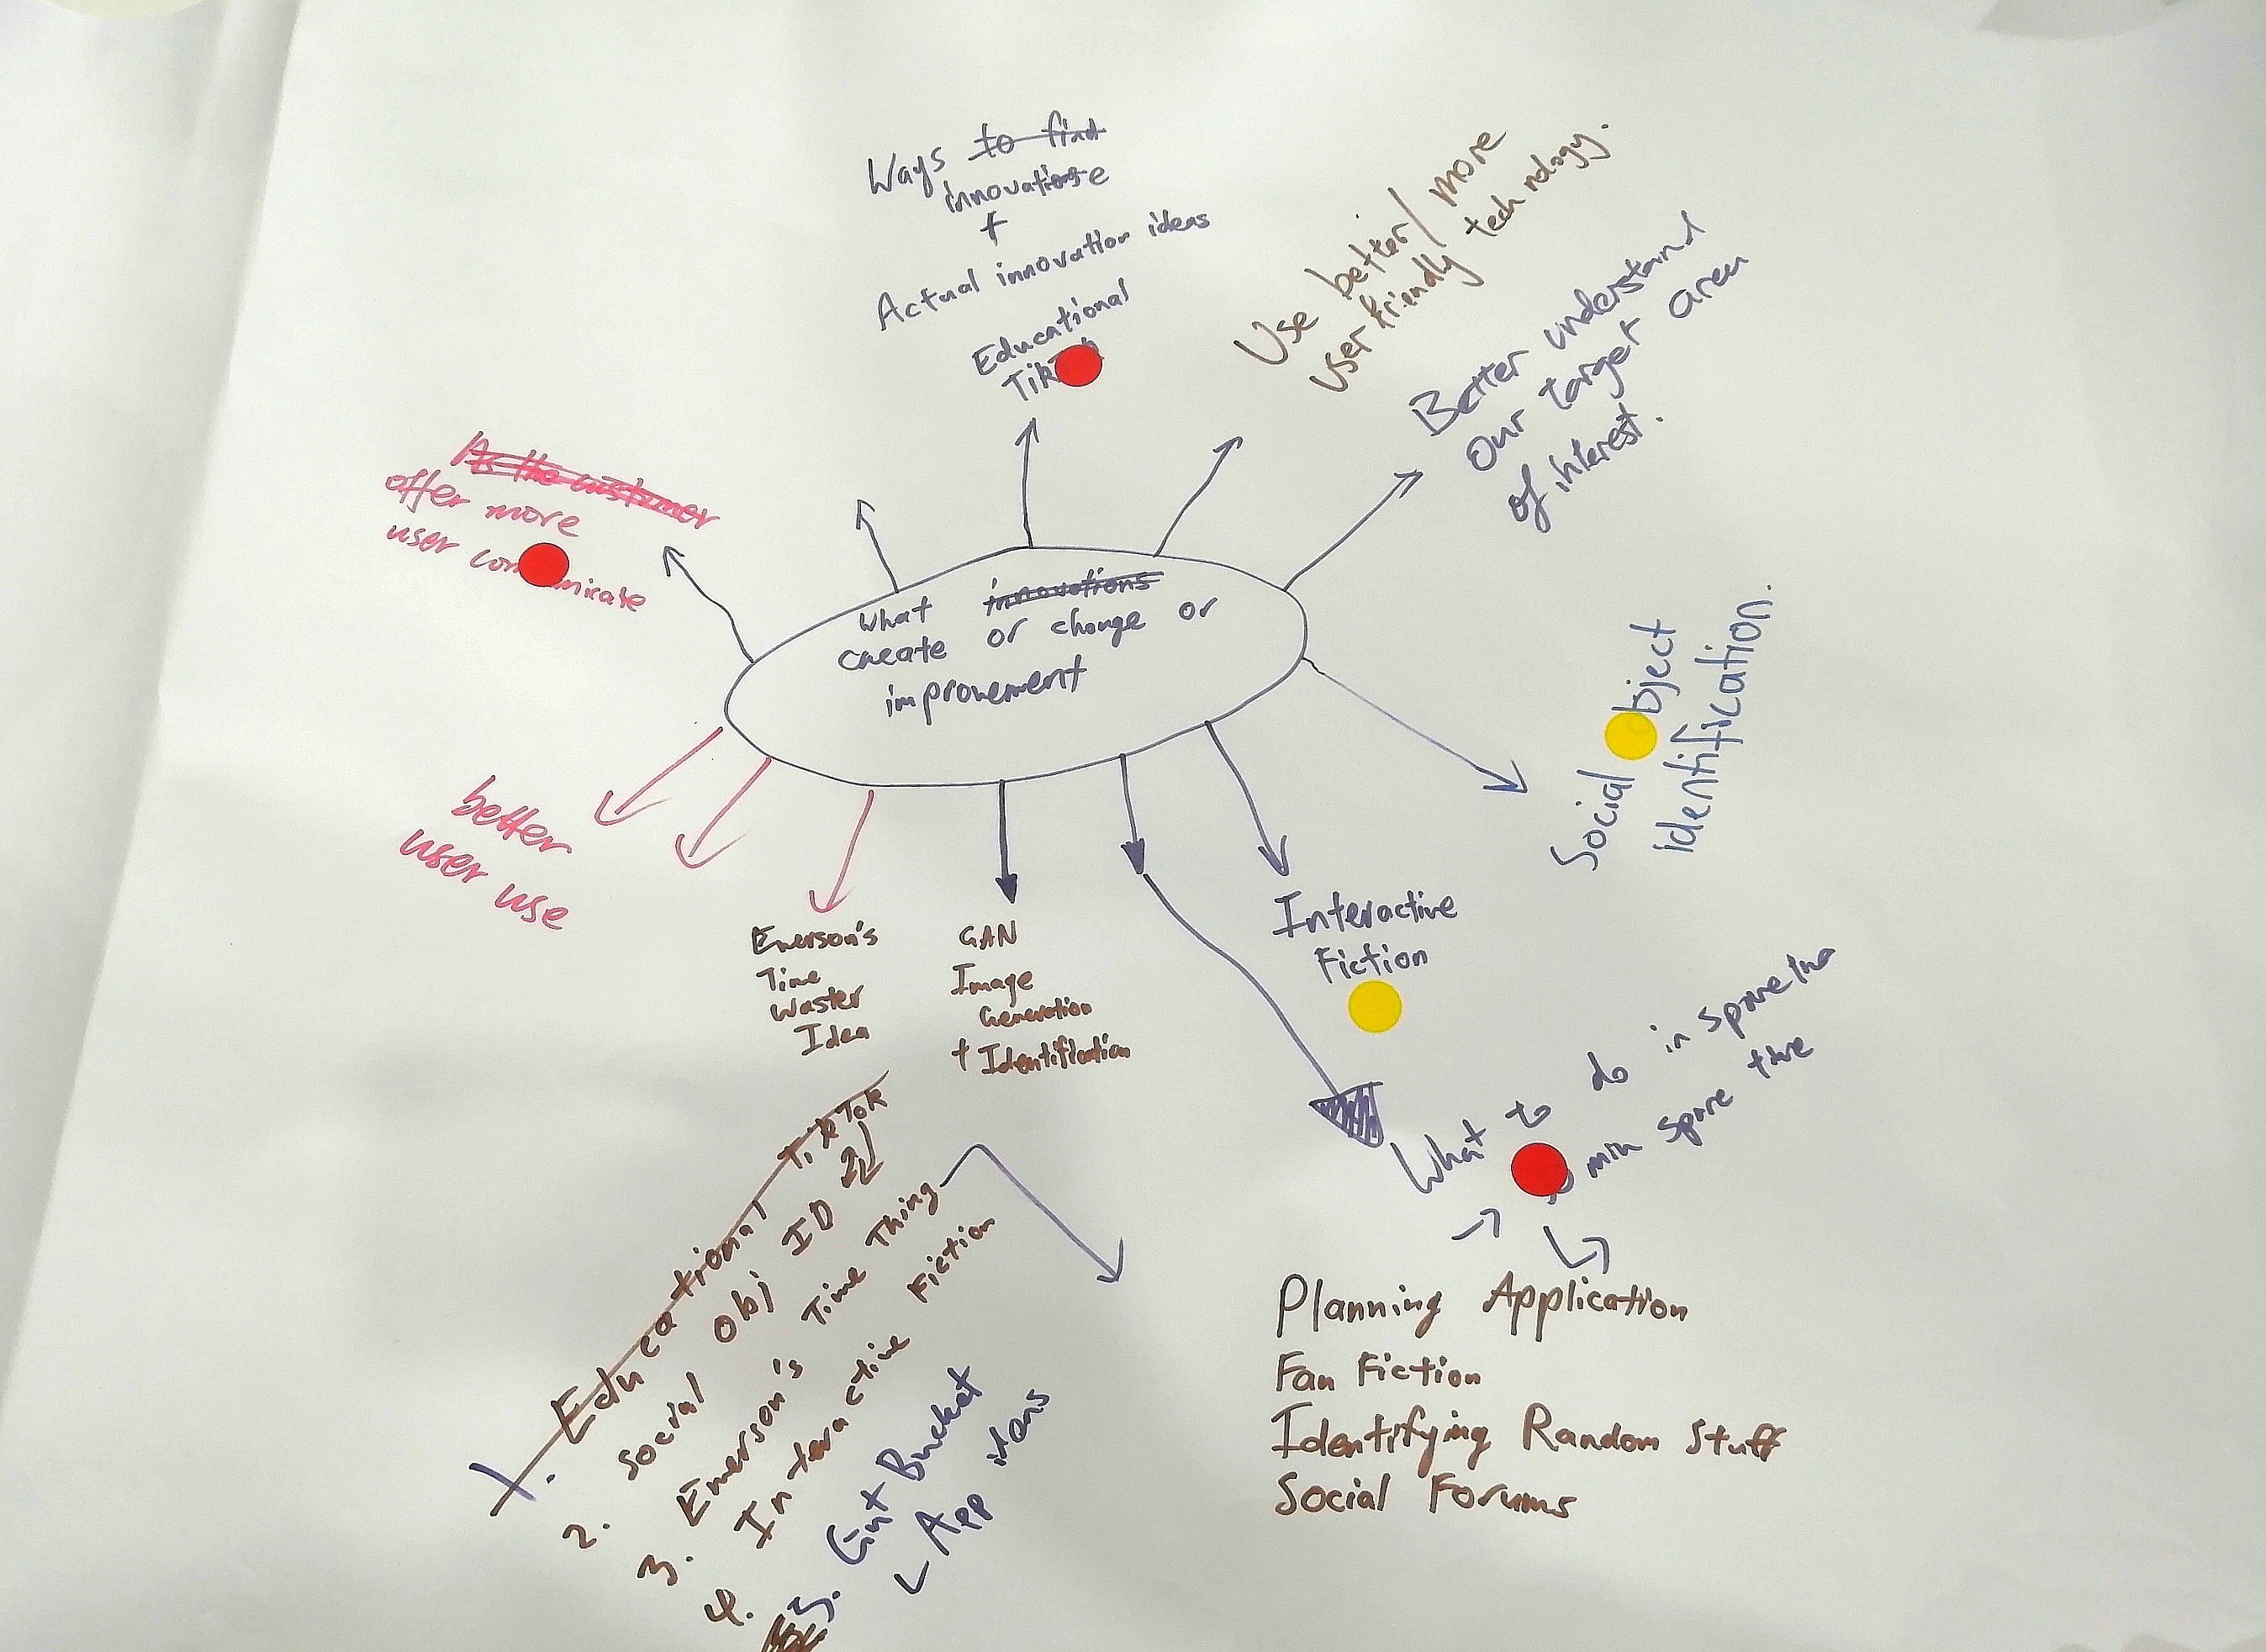 Ways to find
innovatione
+
Actual innovation ideas
Educational
Tik
Use better/ more
user friendly technology.
Better understand
our target area
of interest.
As the customer
offer more
user
what innovations
create or change or
improvement
Social object
identification.
better
user use
Emerson's
Time
Waster
Idea
GAN
Image
Generation
+ Identification
Interactive
Fiction
What to do in spare
min spare time
Planning Application
Fan Fiction
Identifying Random Stuff
Social Forums
1. Educational TikTok
2. Social Obj ID
3. Emerson's Time Thing
4. Interactive Fiction
5. Bucket
App